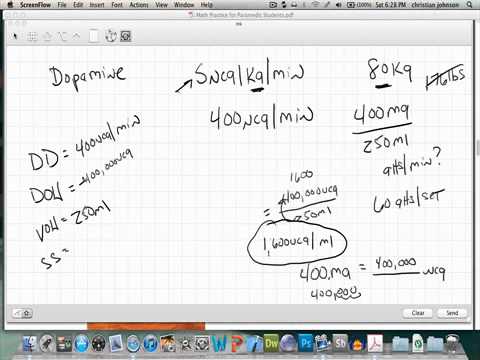 ScreenFlow File Edit Actions Arrange Font View Window Help
Sat 6:28 PM christian johnson
Math Practice for Paramedic Students.pdf
Dopamine
5mcg/kg/min
80kg
176lbs
400mcg/min
400mg
250ml
gtts/min?
60 gtts/set
DD = 400mcg/min
DOH = 400,000mcg
VOH = 250ml
SS =
1600
= 400,000mcg
250ml
1,600mcg/ml
400.mg = 400,000 mcg
400,000
Clear
Send